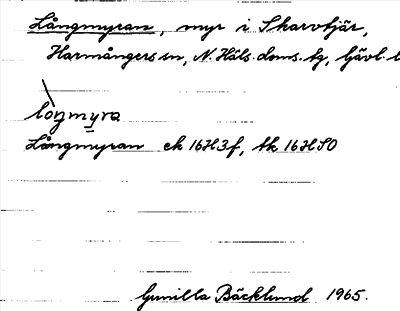 Långmyran, myr i Skarvtjär,
Harmångers sn, N. Häls. doms. tg, Gävl. l
lòŋmyra
Långmyran ek 16H3f, tk 16HSO
Gunilla Bäcklund 1965.